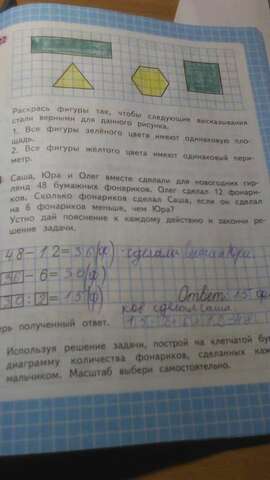 Раскрась фигуры так, чтобы следующие высказывания
стали верными для данного рисунка.
1. Все фигуры зелёного цвета имеют одинаковую пло-
щадь.
2. Все фигуры жёлтого цвета имеют одинаковый пери-
метр.
Саша, Юра и Олег вместе сделали для новогодних гир-
лянд 48 бумажных фонариков. Олег сделал 12 фонари-
ков. Сколько фонариков сделал Саша, если он сделал
на 6 фонариков меньше, чем Юра?
Устно дай пояснение к каждому действию и закончи ре-
шение задачи.
48-12=36(ф) сделали
36-6=30(ф)
30:2=15(ф) Ответ: 15 фо
ков сделал Саша
рь полученный ответ.
Используя решение задачи, построй на клетчатой бу
диаграмму количества фонариков, сделанных каж
мальчиком. Масштаб выбери самостоятельно.